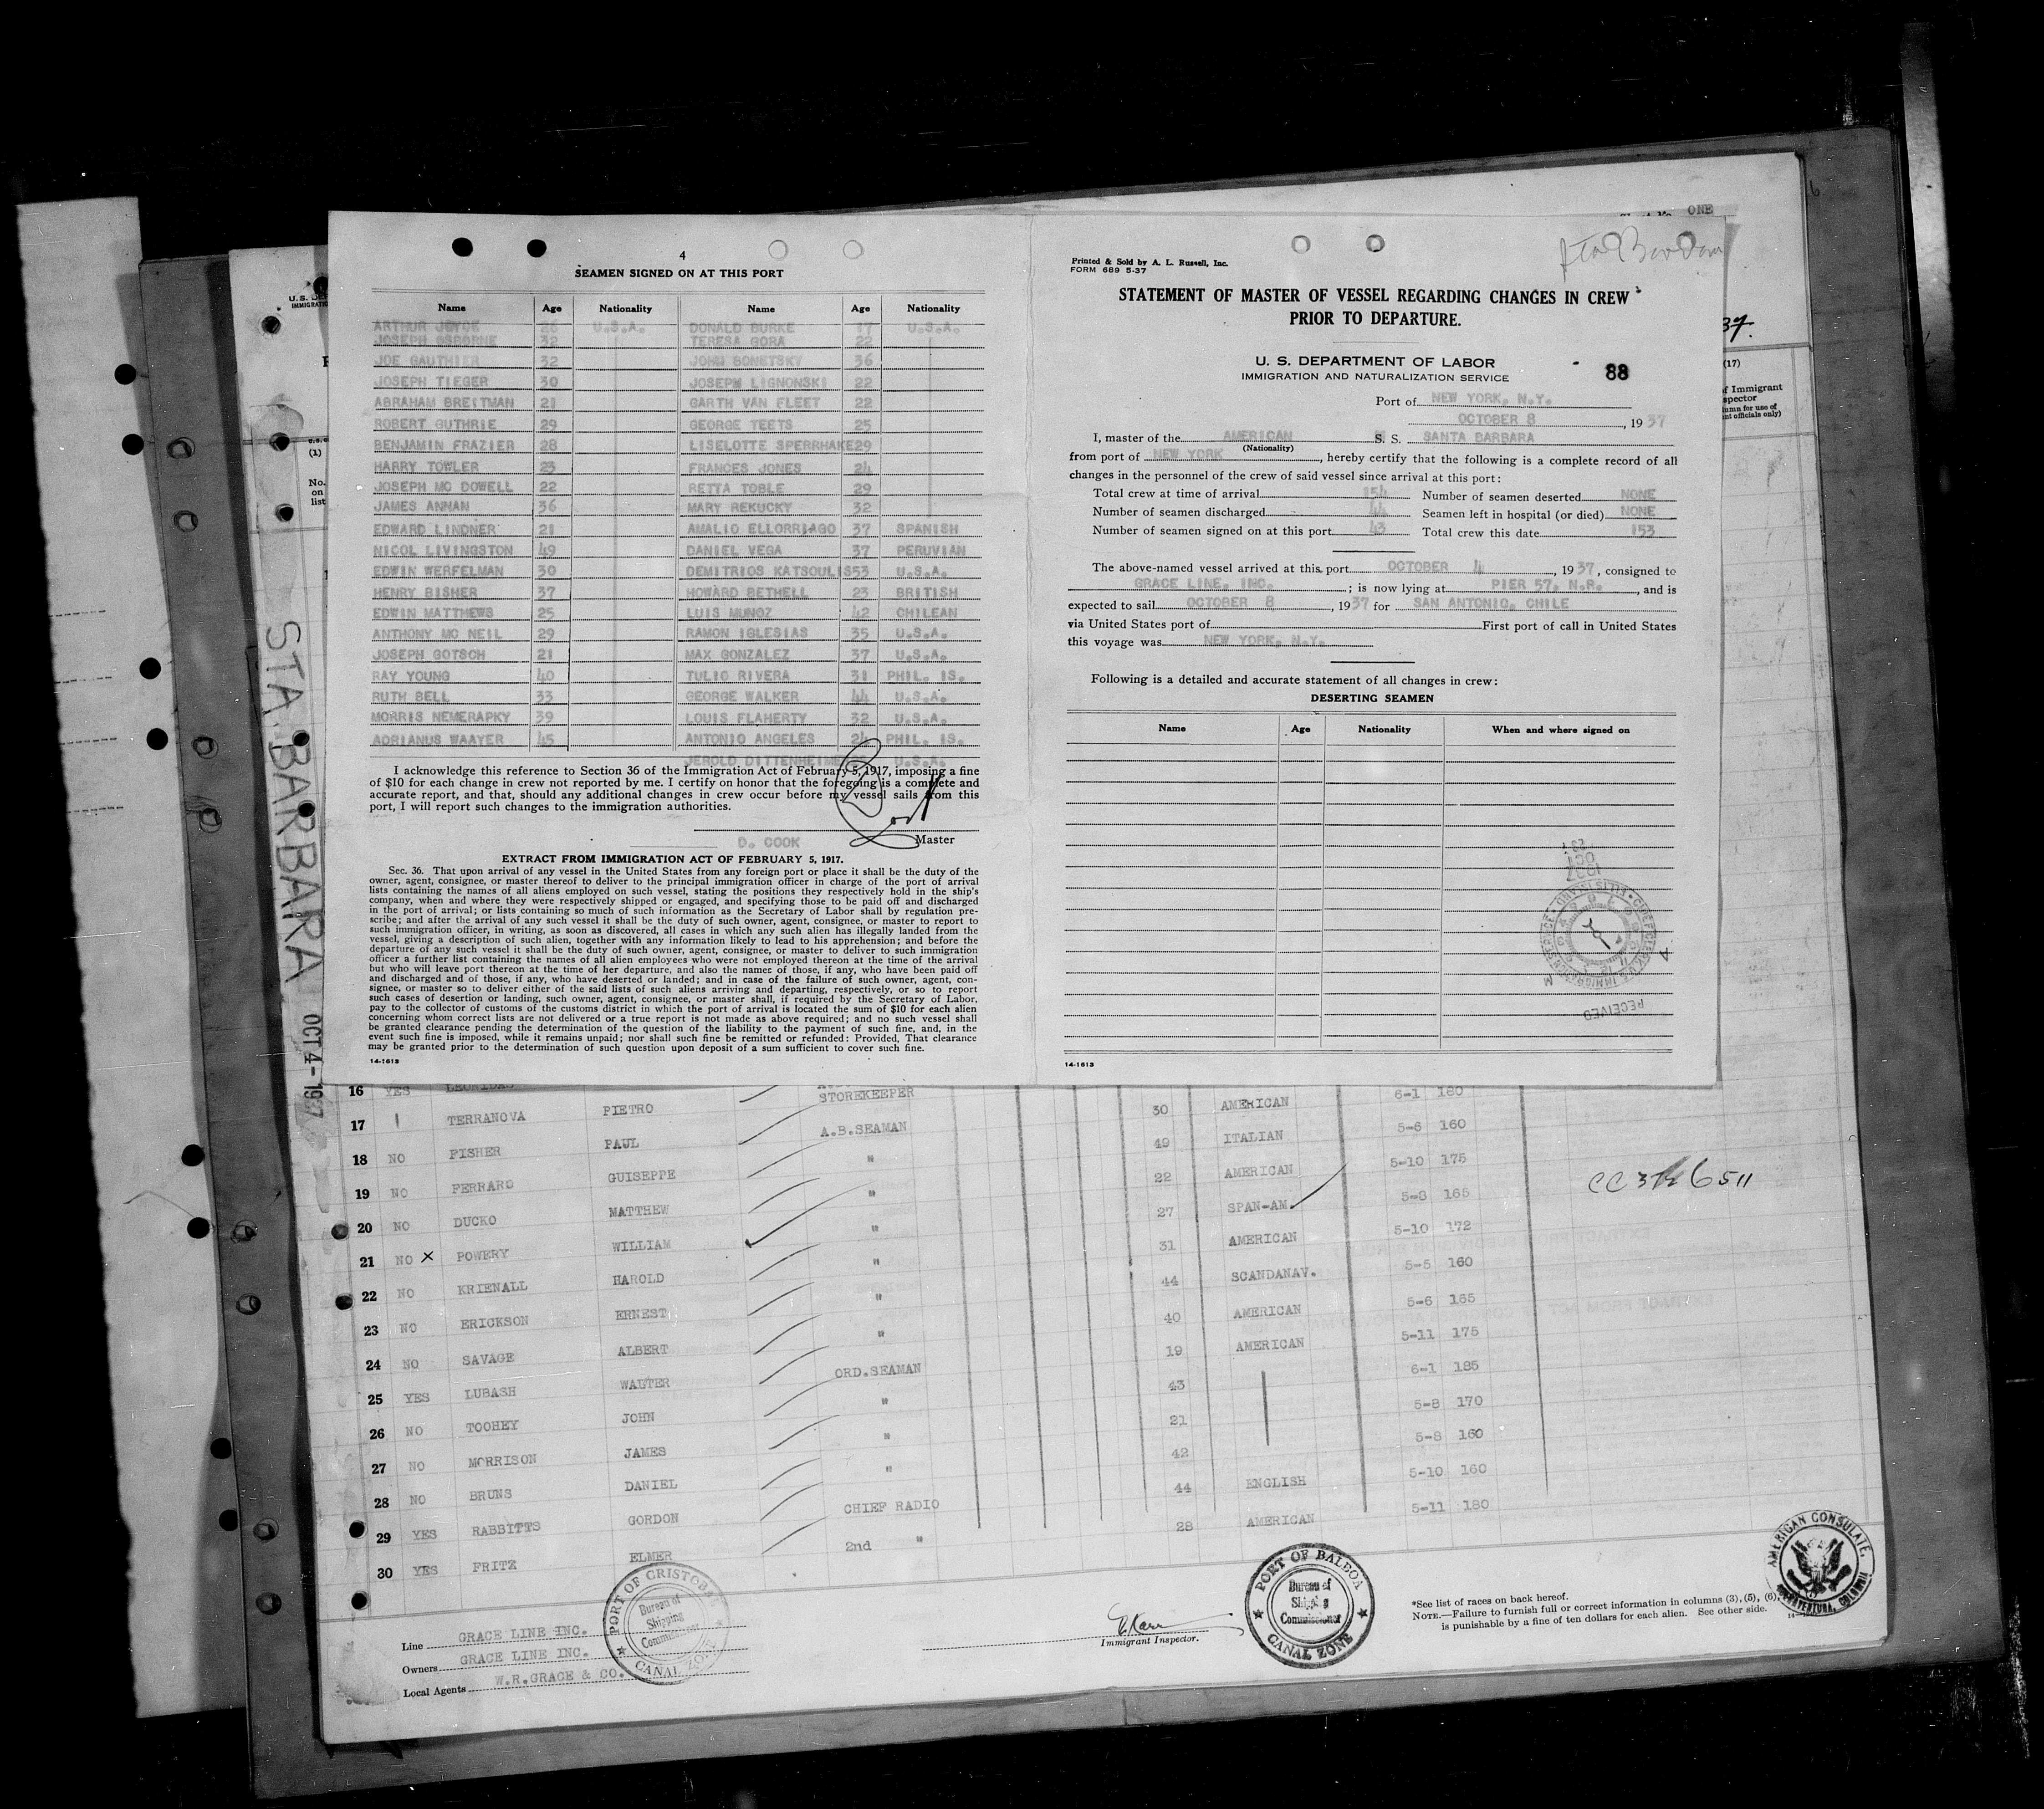 4
SEAMEN SIGNED ON AT THIS PORT
Name Age Nationality Name Age Nationality
ARTHUR JOYCE 28 U.S.A. DONALD BURKE 17 U.S.A.
JOSEPH OSBORNE 32 TERESA GORA 22
JOE GAUTHIER 32 JOHN SONETSKY 36
JOSEPH TIEGER 30 JOSEPH LIGNONSKI 22
ABRAHAM BREITMAN 21 GARTH VAN FLEET 22
ROBERT GUTHRIE 29 GEORGE TEETS 25
BENJAMIN FRAZIER 28 LISELOTTE SPERRHAKE 29
HARRY TOWLER 23 FRANCES JONES 24
JOSEPH MC DOWELL 22 RETTA TOBLE 29
JAMES ANNAN 36 MARY REKUCKY 32
EDWARD LINDNER 21 AMALIO ELLORRIAGO 37 SPANISH
NICOL LIVINGSTON 49 DANIEL VEGA 37 PERUVIAN
EDWIN WERFELMAN 30 DEMITRIOS KATSOULIS 53 U.S.A.
HENRY BISHER 37 HOWARD BETHELL 23 BRITISH
EDWIN MATTHEWS 25 LUIS MUNOZ 42 CHILEAN
ANTHONY MC NEIL 29 RAMON IGLESIAS 35 U.S.A.
JOSEPH GOTSCH 21 MAX GONZALEZ 37 U.S.A.
RAY YOUNG 40 TULIO RIVERA 31 PHIL. IS.
RUTH BELL 33 GEORGE WALKER 44 U.S.A.
MORRIS NEMERAPKY 39 LOUIS FLAHERTY 32 U.S.A.
ADRIANUS WAAYER 45 ANTONIO ANGELES 24 PHIL. IS.
JEROLD DITTENHEIME U.S.A.
I acknowledge this reference to Section 36 of the Immigration Act of February 5, 1917, imposing a fine
of $10 for each change in crew not reported by me. I certify on honor that the foregoing is a complete and
accurate report, and that, should any additional changes in crew occur before my vessel sails from this
port, I will report such changes to the immigration authorities.
D. COOK Master
EXTRACT FROM IMMIGRATION ACT OF FEBRUARY 5, 1917.
Sec. 36. That upon arrival of any vessel in the United States from any foreign port or place it shall be the duty of the
owner, agent, consignee, or master thereof to deliver to the principal immigration officer in charge of the port of arrival
lists containing the names of all aliens employed on such vessel, stating the positions they respectively hold in the ship's
company, when and where they were respectively shipped or engaged, and specifying those to be paid off and discharged
in the port of arrival; or lists containing so much of such information as the Secretary of Labor shall by regulation pre-
scribe; and after the arrival of any such vessel it shall be the duty of such owner, agent, consignee, or master to report to
such immigration officer, in writing, as soon as discovered, all cases in which any such alien has illegally landed from the
vessel, giving a description of such alien, together with any information likely to lead to his apprehension; and before the
departure of any such vessel it shall be the duty of such owner, agent, consignee, or master to deliver to such immigration
officer a further list containing the names of all alien employees who were not employed thereon at the time of the arrival
but who will leave port thereon at the time of her departure, and also the names of those, if any, who have been paid off
and discharged and of those, if any, who have deserted or landed; and in case of the failure of such owner, agent, con-
signee, or master so to deliver either of the said lists of such aliens arriving and departing, respectively, or so to report
such cases of desertion or landing, such owner, agent, consignee, or master shall, if required by the Secretary of Labor,
pay to the collector of customs of the customs district in which the port of arrival is located the sum of $10 for each alien
concerning whom correct lists are not delivered or a true report is not made as above required; and no such vessel shall
be granted clearance pending the determination of the question of the liability to the payment of such fine, and, in the
event such fine is imposed, while it remains unpaid; nor shall such fine be remitted or refunded: Provided, That clearance
may be granted prior to the determination of such question upon deposit of a sum sufficient to cover such fine.
14-1613
Printed & Sold by A. L. Russell, Inc.
FORM 689 5-37
STATEMENT OF MASTER OF VESSEL REGARDING CHANGES IN CREW
PRIOR TO DEPARTURE.
U. S. DEPARTMENT OF LABOR
IMMIGRATION AND NATURALIZATION SERVICE
88
Port of NEW YORK, N.Y.
OCTOBER 8, 1937
I, master of the AMERICAN S. S. SANTA BARBARA
(Nationality)
from port of NEW YORK, hereby certify that the following is a complete record of all
changes in the personnel of the crew of said vessel since arrival at this port:
Total crew at time of arrival 154 Number of seamen deserted NONE
Number of seamen discharged 44 Seamen left in hospital (or died) NONE
Number of seamen signed on at this port 43 Total crew this date 153
The above-named vessel arrived at this port OCTOBER 4, 1937, consigned to
GRACE LINE, INC.; is now lying at PIER 57, N.R., and is
expected to sail OCTOBER 8, 1937 for SAN ANTONIO, CHILE
via United States port of First port of call in United States
this voyage was NEW YORK, N.Y.
Following is a detailed and accurate statement of all changes in crew:
DESERTING SEAMEN
Name Age Nationality When and where signed on
RECEIVED
14-1613
ONE
37.
(17)
STA. BARBARA OCT 4-1937
(1)
No.
on
list
16 YES LEONIDAS
STOREKEEPER 6-1 180
17 TERRANOVA PIETRO A.B.SEAMAN 30 AMERICAN 5-6 160
18 NO FISHER PAUL " 49 ITALIAN 5-10 175
19 NO FERRARO GUISEPPE " 22 AMERICAN 5-8 165
20 NO DUCKO MATTHEW " 27 SPAN-AM. 5-10 172
21 NO X POWERY WILLIAM " 31 AMERICAN 5-5 160
22 NO KRIENALL HAROLD " 44 SCANDANAV. 5-6 165
23 NO ERICKSON ERNEST " 40 AMERICAN 5-11 175
24 NO SAVAGE ALBERT ORD.SEAMAN 19 AMERICAN 6-1 185
25 YES LUBASH WALTER " 43 5-8 170
26 NO TOOHEY JOHN " 21 5-8 160
27 NO MORRISON JAMES " 42 5-10 160
28 NO BRUNS DANIEL CHIEF RADIO 44 ENGLISH 5-11 180
29 YES RABBITTS GORDON 2nd " 28 AMERICAN
30 YES FRITZ ELMER
Line GRACE LINE INC.
Owners GRACE LINE INC.
Local Agents W.R.GRACE & CO.
PORT OF CRISTOBAL
Bureau of
Shipping
Commissioner
CANAL ZONE
Immigrant Inspector.
PORT OF BALBOA
Bureau of
Shipping
Commissioner
CANAL ZONE
*See list of races on back hereof.
NOTE.—Failure to furnish full or correct information in columns (3), (5), (6),
is punishable by a fine of ten dollars for each alien. See other side.
AMERICAN CONSULATE,
BUENAVENTURA, COLOMBIA